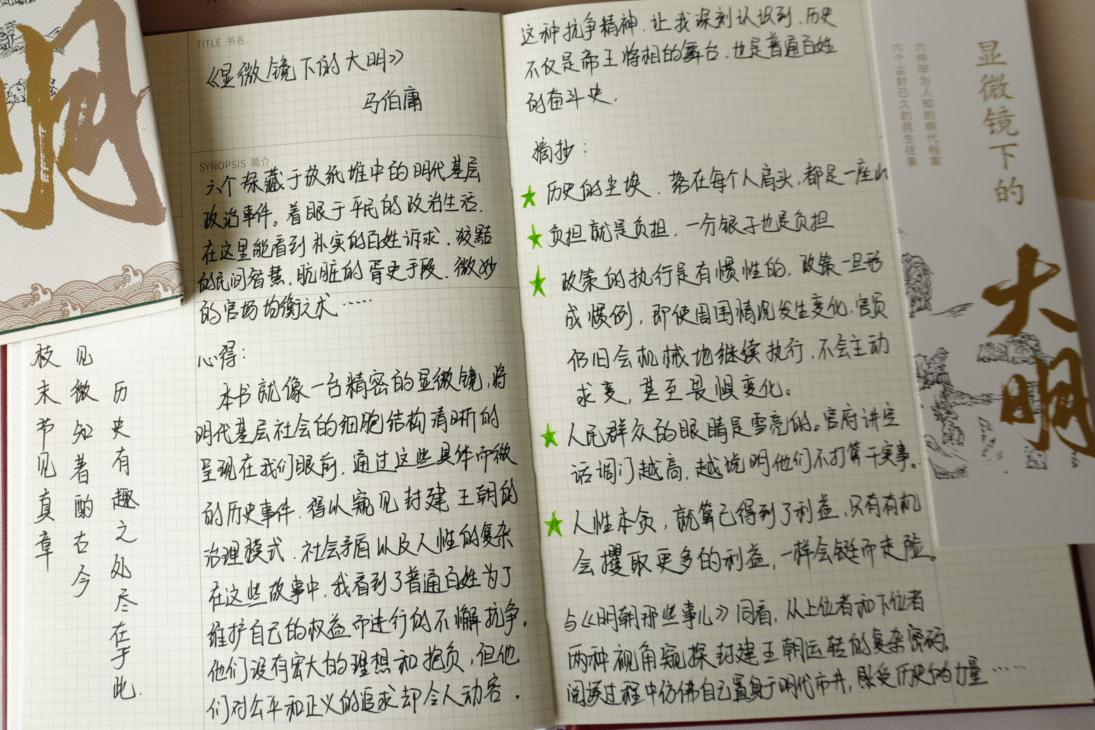 明
TITLE 书名.
《显微镜下的大明》
马伯庸
SYNOPSIS 简介.
六个探藏于故纸堆中的明代基层
政治事件。着眼于平民的政治生活.
在这里能看到朴实的百姓诉求.狡黠
的民间智慧.肮脏的胥吏手段.微妙
的官场均衡之术……
历史有趣之处尽在于此.
见微知著酌古今
枝末节见真章
心得:
本书就像一台精密的显微镜,将
明代基层社会的细胞结构清晰的
呈现在我们眼前.通过这些具体而微
的历史事件.得以窥见封建王朝的
治理模式.社会矛盾以及人性的复杂
在这些故事中,我看到了普通百姓为了
维护自己的权益而进行的不懈抗争.
他们没有宏大的理想和抱负,但他
们对公平和正义的追求却令人动容.
这种抗争精神.让我深刻认识到.历史
不仅是帝王将相的舞台.也是普通百姓
的奋斗史.
摘抄:
★历史的尘埃.落在每个人肩头.都是一座山
★负担就是负担,一分银子也是负担
★政策的执行是有惯性的.政策一旦形
成惯例,即使周围情况发生变化.官员
仍旧会机械地继续执行,不会主动
求变,甚至畏惧变化。
★人民群众的眼睛是雪亮的。官府讲空
话调门越高,越说明他们不打算干实事。
★人性本贪,就算已得到了利益,只有有机
会攫取更多的利益,一样会铤而走险。
与《明朝那些事儿》同看,从上位者和下位者
两种视角窥探封建王朝运转的复杂密码.
阅读过程中仿佛自己置身于明代市井,感受历史的力量……
显微镜下的
大明
六件罕为人知的明代档案
六个尘封已久的民生往事